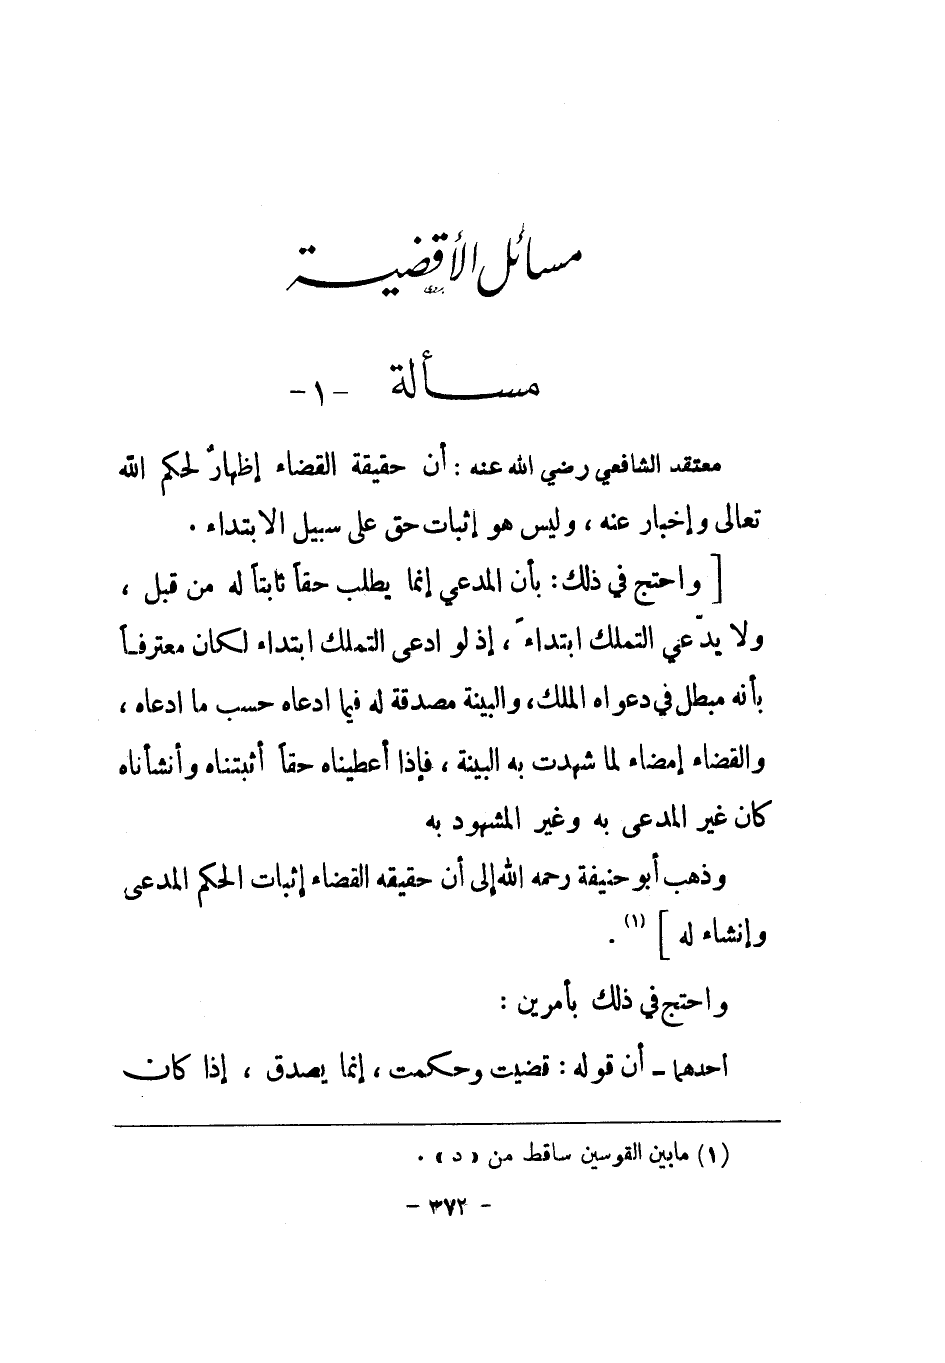 مسائل الأقضية
مسألة -١-
معتقد الشافعي رضي الله عنه : أن حقيقة القضاء إظهارٌ لحكم الله
تعالى وإخبار عنه ، وليس هو إثبات حق على سبيل الابتداء .
[ واحتج في ذلك : بأن المدعي إنما يطلب حقاً ثابتاً له من قبل ،
ولا يدّعي التملك ابتداءً ، إذ لو ادعى التملك ابتداء لكان معترفاً
بأنه مبطل في دعواه الملك، والبينة مصدقة له فيما ادعاه حسب ما ادعاه ،
والقضاء إمضاء لما شهدت به البينة ، فإذا أعطيناه حقاً أثبتناه وأنشأناه
كان غير المدعى به وغير المشهود به
وذهب أبو حنيفة رحمه الله إلى أن حقيقه القضاء إثبات الحكم المدعى
وإنشاء له ] (١) .
واحتج في ذلك بأمرين :
احدهما - أن قوله : قضيت وحكمت ، إنما يصدق ، إذا كان
(١) مابين القوسين ساقط من « د » .
- ٣٧٢ -